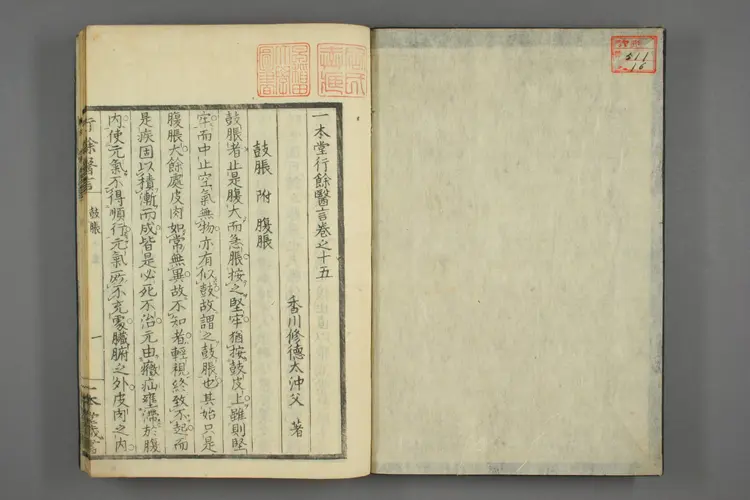 一本堂行餘醫言卷之十五
香川修德太沖父 著
鼓脹 附 腹脹
鼓脹者止是腹大而急脹按之堅牢猶按鼓皮上雖則堅
牢而中止空氣無物亦有似鼓故謂之鼓脹也其始只是
腹脹大餘處皮肉如常無異故不知者輕視終致不起而
是疾因以積漸而成皆是必死不治元由癥疝壅濡於腹
內使元氣不得順行元氣所不充處臟腑之外皮肉之內
行餘醫言
鼓脹
一
一本堂藏
511
16